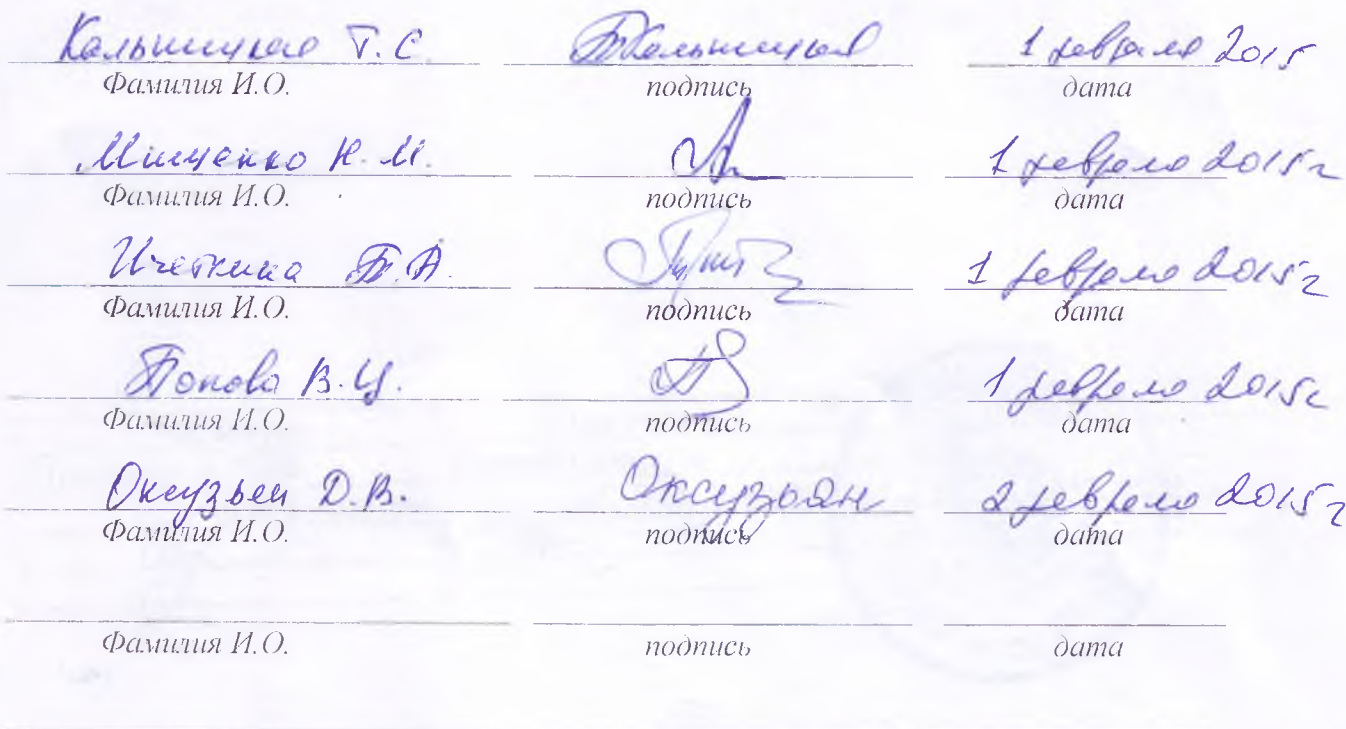 Т. С. 1 февраля 2015
Фамилия И.О. подпись дата
Мищенко Н. М. 1 февраля 2015г
Фамилия И.О. подпись дата
Ичеткина Т. А. 1 февраля 2015г
Фамилия И.О. подпись дата
Попова В. Ц. 1 февраля 2015г
Фамилия И.О. подпись дата
Оксузьян Д. В. Оксузьян 2 февраля 2015г
Фамилия И.О. подпись дата
Фамилия И.О. подпись дата